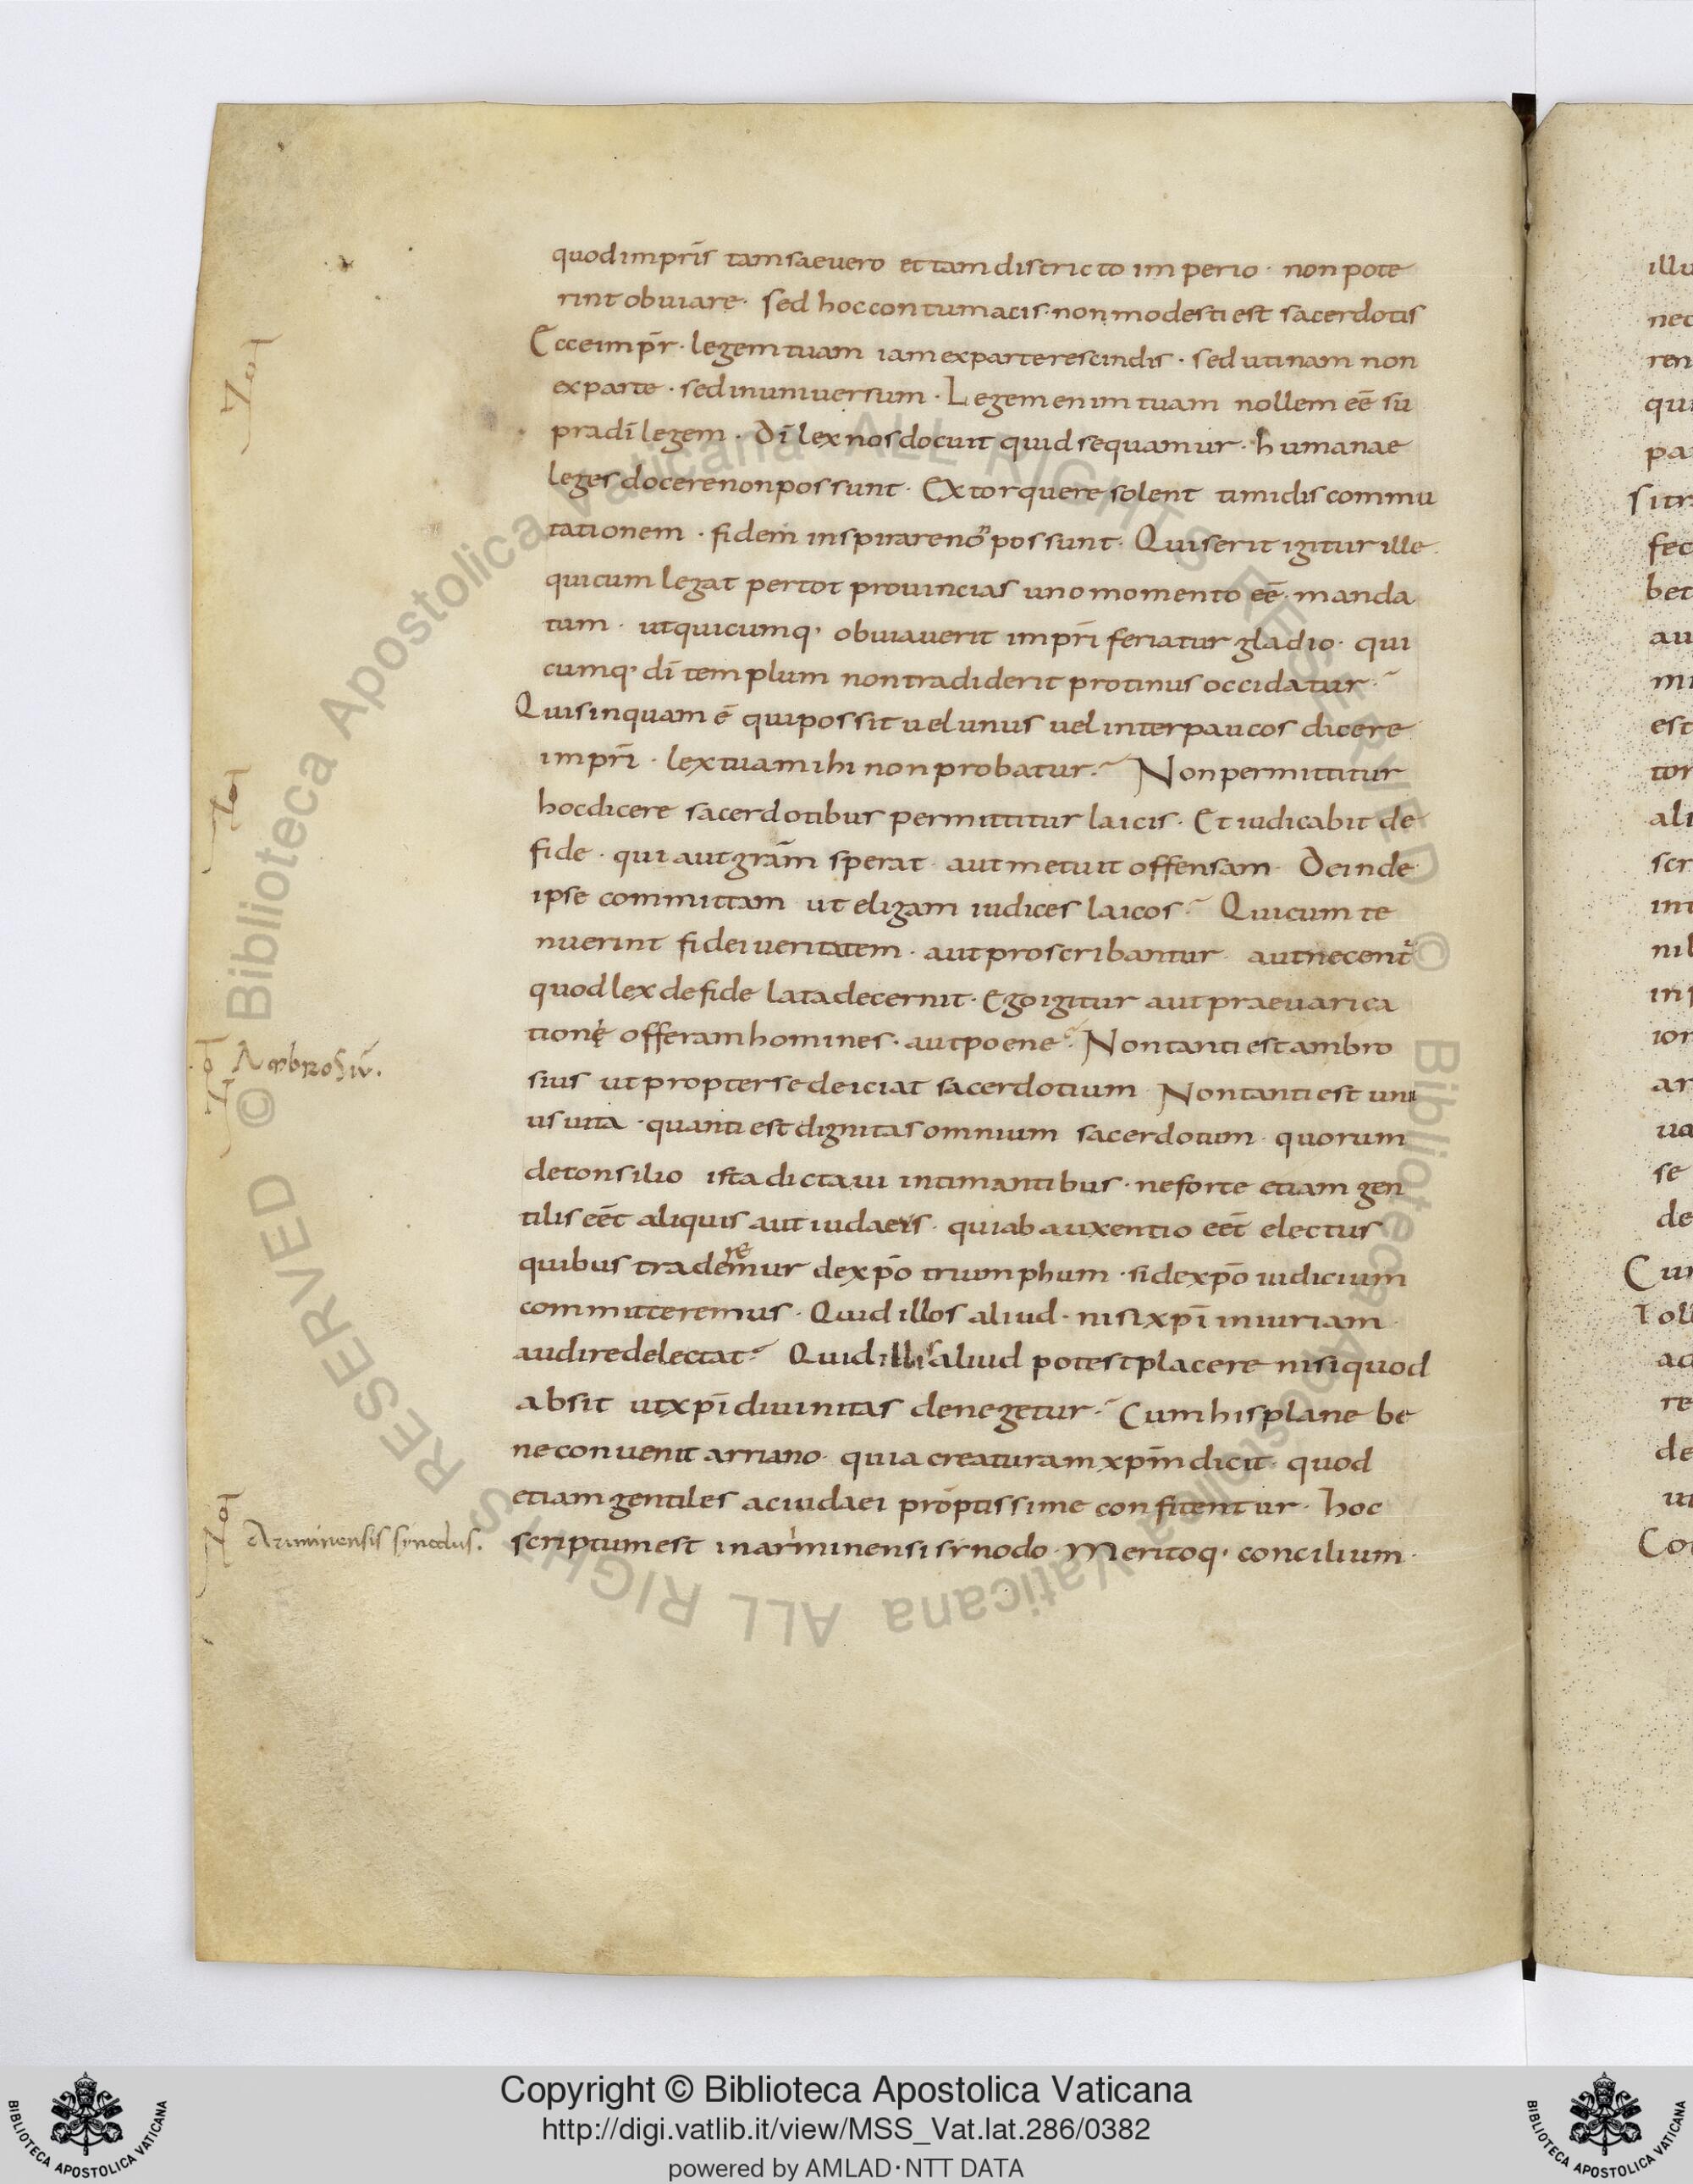 quod impr̄is tam saeuero et tam districto imperio · non pote
rint obuiare · sed hoc contumacis · non modesti est sacerdotis
Ecce impr̄ · legem tuam iam ex parte rescindis · sed utinam non
ex parte · sed in uniuersum · Legem enim tuam nollem eē su
pra dī legem · dī lex nos docuit quid sequamur · humanae
leges docere non possunt · Extorquere solent timidis commu
tationem · fidem inspirare nō possunt · Quis erit igitur ille
qui cum legat per tot prouincias uno momento eē manda
tum · ut quicumq· obuiauerit impr̄i feriatur gladio · qui
cumq· dī templum non tradiderit protinus occidatur
Quis inquam ē qui possit uel unus uel inter paucos dicere
impr̄i · lex tua mihi non probatur · Non permittitur
hoc dicere sacerdotibus permittitur laicis · Et iudicabit de
fide · qui aut grām sperat · aut metuit offensam · Deinde
ipse committam ut eligam iudices laicos · Qui cum te
nuerint fidei ueritatem · aut proscribantur aut necent᷑
quod lex de fide lata decernit · Ego igitur aut praeuarica
tionę offeram homines · aut poene · Non tanti est ambro
sius ut propter se deiciat sacerdotium · Non tanti est uni
us uita · quanti est dignitas omnium sacerdotum · quorum
de consilio ista dictaui intimantibus · ne forte etiam gen
tilis eēt aliquis aut iudaeis · qui ab auxentio eēt electus
re
quibus trademur de xp̄o triumphum · si de xp̄o iudicium
committeremus · Quid illos aliud · nisi xp̄i iniuriam
audire delectat · Quid illis aliud potest placere nisi quod
absit ut xp̄i diuinitas denegetur · Cum his plane be
ne conuenit arriano · quia creaturam xp̄m dicit · quod
etiam gentiles ac iudaei prōptissime confitentur · hoc
Ariminensis synodus.
scriptum est in arminensi synodo · Meritoq· concilium ·
Ambrosiū.
illu
nec
ren
qui
pa
sitn
fec
bet
au
mi
est
tor
ali
scr
int
nil
inf
ion
ar
ua
se
de
Cur
Toll
ac
re
de
ut
Con
© Biblioteca Apostolica Vaticana ALL RIGHTS RESERVED © Biblioteca Apostolica Vaticana ALL RIGHTS RESERVED
Copyright © Biblioteca Apostolica Vaticana
http://digi.vatlib.it/view/MSS_Vat.lat.286/0382
powered by AMLAD·NTT DATA
BIBLIOTECA APOSTOLICA VATICANA
BIBLIOTECA APOSTOLICA VATICANA